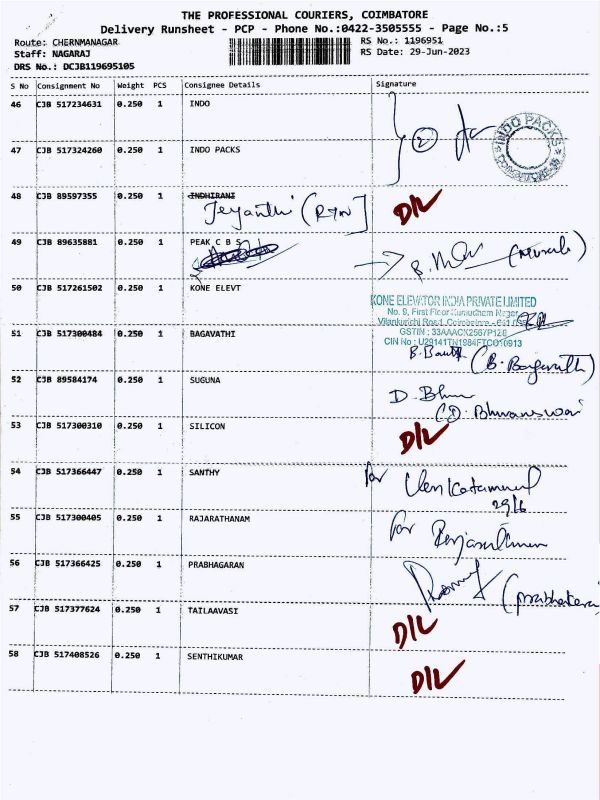 THE PROFESSIONAL COURIERS, COIMBATORE
Delivery Runsheet - PCP - Phone No.:0422-3505555 - Page No.:5
Route: CHERNMANAGAR RS No.: 1196951
Staff: NAGARAJ RS Date: 29-Jun-2023
DRS No.: DCJB119695105
S No Consignment No Weight PCS Consignee Details Signature
46 CJB 517234631 0.250 1 INDO
2
INDO PACKS
47 CJB 517324260 0.250 1 INDO PACKS
48 CJB 89597355 1 INDHIRANI
Jeyanthi D/L
49 CJB 89635881 0.250 1 PEAK C B S
50 CJB 517261502 0.250 1 KONE ELEVT
KONE ELEVATOR INDIA PRIVATE LIMITED
No. 9, First Floor Nagar
Vilankurichi Road, Coimbatore
GSTIN : 33AAACK2567P1
CIN No : U29141TN1984FTC010913
51 CJB 517300484 0.250 1 BAGAVATHI
52 CJB 89584174 0.250 1 SUGUNA
D.
(D. Bhuvaneswari
53 CJB 517300310 0.250 1 SILICON D/L
54 CJB 517366447 0.250 1 SANTHY
for
29/6
55 CJB 517300405 0.250 1 RAJARATHANAM for
56 CJB 517366425 0.250 1 PRABHAGARAN
57 CJB 517377624 0.250 1 TAILAAVASI D/L
58 CJB 517408526 0.250 1 SENTHIKUMAR D/L